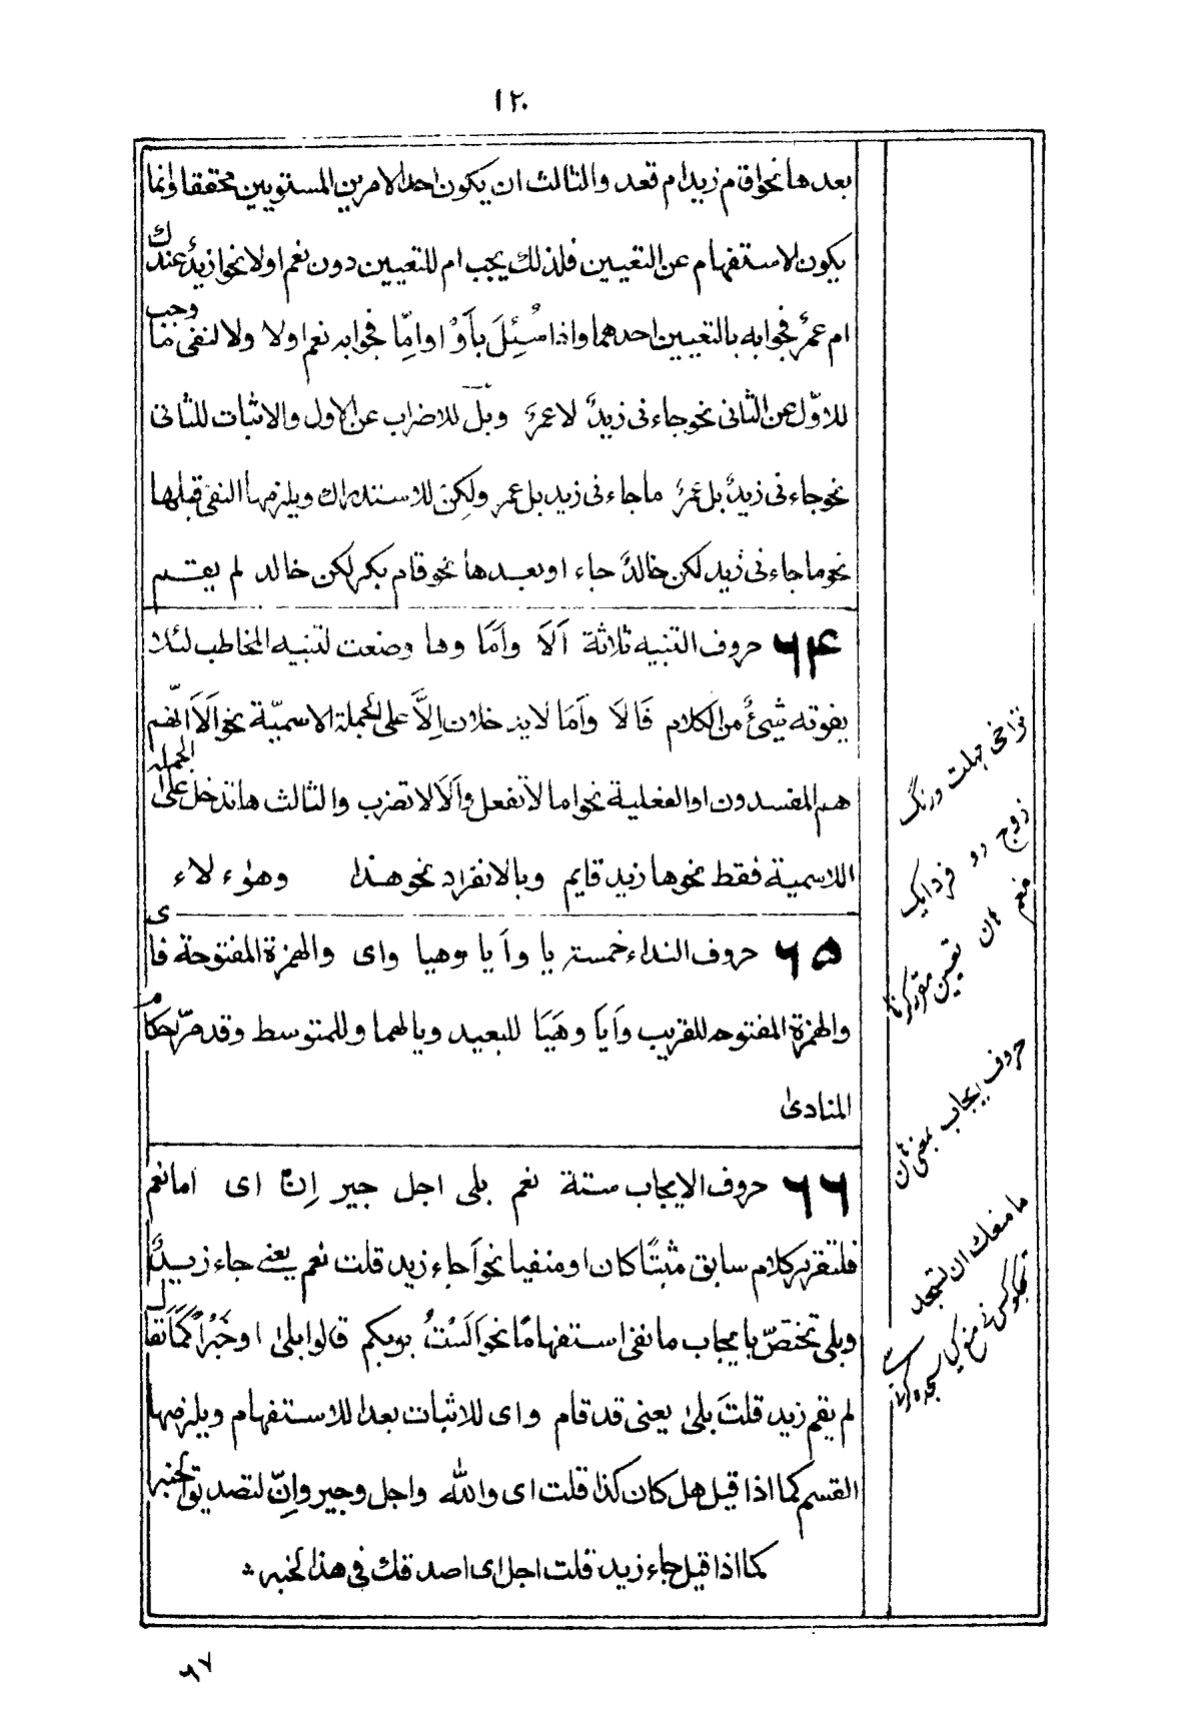 ١٢٠
بعدها نحو اقام زيد ام قعد والثالث ان يكون احد الامرين المستويين محققا وانما
يكون لاستفهام عن التعيين فلذلك يجب ام للتعيين دون نعم اولا نحو ازيدٌ عندك
ام عمرٌ فجوابه بالتعيين احدهما واذا سُئِلَ بأَوْ او امِّا فجوابه نعم اولا ولا لنفى ما وجب
للاوّل عن الثانى نحو جاءنى زيدٌ لا عمرٌ وبَلّ للاضراب عن الاول والاثبات للثانى
نحو جاءنى زيدٌ بل عمرٌ ما جاءنى زيد بل عمر ولكِنْ للاستدراك ويلزمها النفى قبلها
نحو ما جاءنى زيد لكن خالدٌ جاء او بعدها نحو قام بكر لكن خالد لم يقم
٦٤ حروف التنبيه ثلاثة اَلَا واَمَا وها وضعت لتنبيه المخاطب لئلا
يفوته شيئٌ من الكلام فَالَا واَمَا لايدخلان اِلاَّ على الجملة الاسميّة نحو اَلَا انّهم
هم المفسدون او الفعلية نحو اما لا تفعل واَلَا لا تضرب والثالث ها تدخل على الجملة
اللاسمية فقط نحوها زيد قايم وبالانفراد نحو هذا وهؤلاء
٦٥ حروف النداء خمسة يا واَيا وهيا واى والهمزة المفتوحة فاى
والهمزة المفتوحه للقريب واَيَا وهَيَا للبعيد ويا لهما وللمتوسط وقد مرّ احكام
المنادىٰ
٦٦ حروف الايجاب ستة نعم بلى اجل جير اِنّ اى اما نعم
فلتقرير كلام سابق مثبتًا كان او منفيا نحو اَجاء زيد قلت نعم يعنے جاء زيدٌ
وبلى تختصّ بايجاب ما نفى استفهامًا نحو اَلَسْتُ بربكم قالوا بلىٰ او خَبْراً كَمَا يَقال
لم يقم زيد قلتَ بلىٰ يعنى قد قام واى للاثبات بعد الاستفهام ويلزمها
القسم كما اذا قيل هل كان كذا قلت اى والله واجل وجير واِنّ لتصديق الخبر
كما اذا قيل جاء زيد قلت اجل اى اصدقك فى هذا الخبر
تراخى مہلت ورنگ
زوج دو فرد ایک
تعیین مقرر کرنا
حروف ایجاب بمعنی ہاں
ما منعک ان تسجد
تجکو کس نے منع کی سجدہ کرنے سے
٦٧